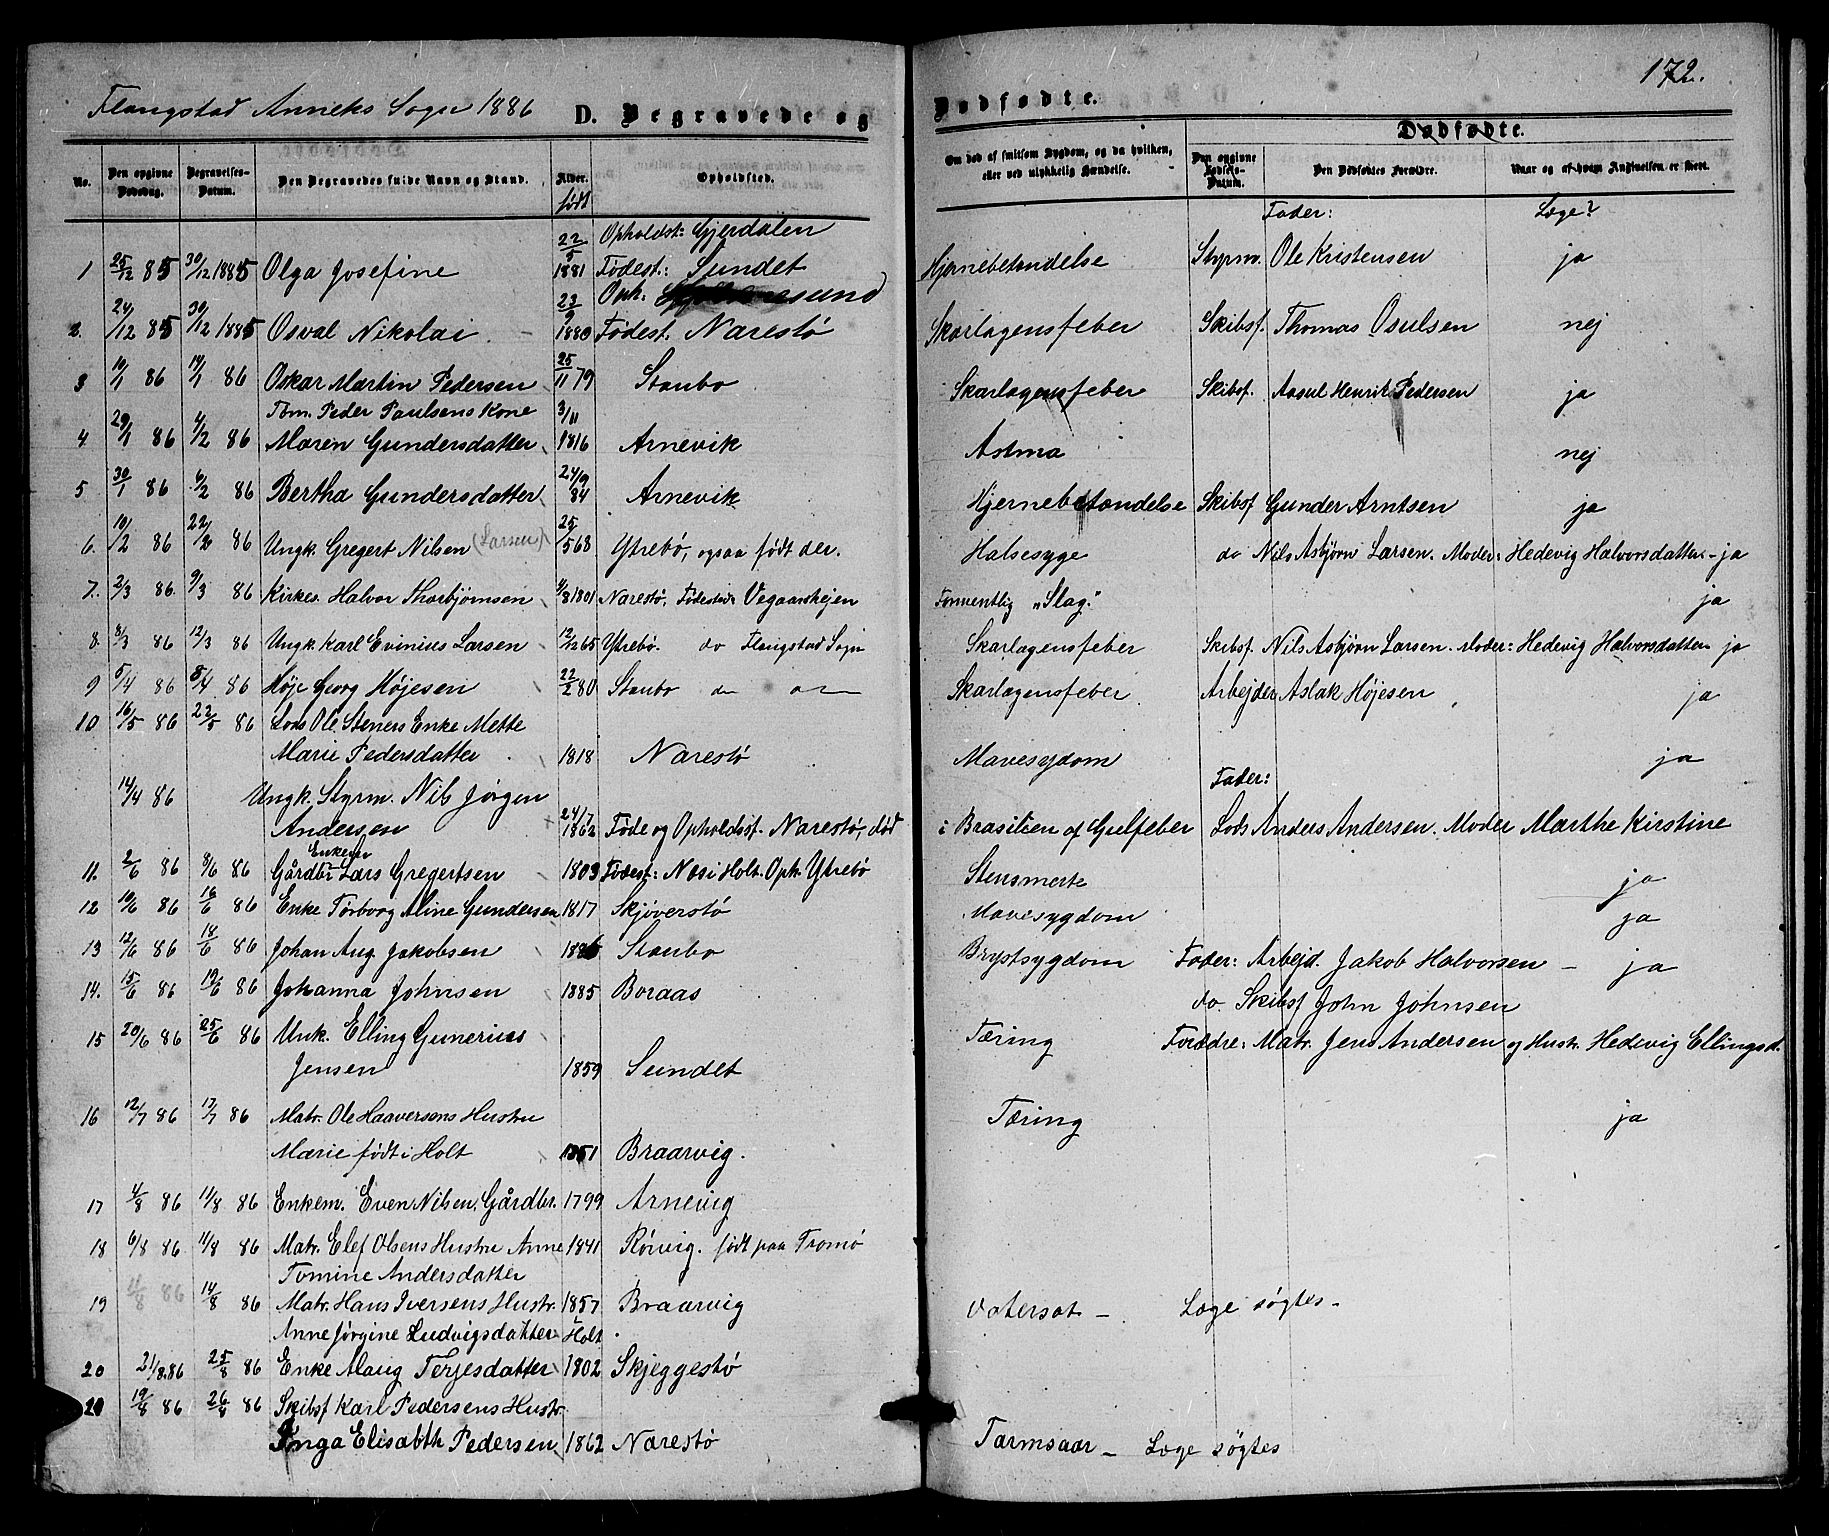 Flangstad Anneks Sogn 1886 D. Begravede og
Dødfødte. 172.
No. Den opgivne Dødsdag. Begravelses-Datum. Den Begravedes fulde Navn og Stand. Alder. født Opholdsted.
Om død af smitsom Sygdom, og da hvilken, eller ved ulykkelig Hændelse.
Dødfødte.
Den opgivne Fødsels-Datum. Den Dødfødtes Forældre. Naar og af hvem Anmeldelsen er skeet.
Fader: Læge?
22/5 Opholdst: Gjerdalen
1 25/12 85 30/12 1885 Olga Josefine 1881 Födest.: Sundet Hjernebetændelse Styrm. Ole Kristensen ja
23/9 Oph:
2. 24/12 85 30/12 1885 Osval Nikolai 1880 Födest. Narestö Skarlagensfeber Skibsf. Thomas Osulsen nej
3 10/1 86 14/1 86 Oskar Martin Pedersen 25/11 79 Staubo Skarlagensfeber Skibsf. Aasul Henrik Pedersen ja
Tøm. Peder Paulsens Kone 3/11
4. 29/1 86 4/2 86 Maren Gundersdatter 1816 Arnevik Astma nej
5 30/1 86 6/2 86 Bertha Gundersdatter 24/9 84 Arnevik Hjernebetændelse Skibsf Gunder Arntsen ja
6. 10/2 86 22/2 86 Ungk. Gregert Nilsen (Larsen) 25/5 68 Ytrebö, ogsaa født der. Halsesyge do Nils Asbjörn Larsen. Moder: Hedevig Halvorsdatter - ja
7. 2/3 86. 9/3 86 Kirkes. Halvor Thorbjörnsen 4/8 1801 Narestö, Födested: Vegaarshejen Formentlig "Slag." ja
8. 8/3 86 12/3 86 Ungk. Karl Evinius Larsen 12/12 65 Ytrebö. do Flangstad Sogn Skarlagensfeber Skibsf. Nils Asbjörn Larsen. Moder: Hedevig Halvorsdatter ja
9 5/4 86 8/4 86 Höje Georg Höjesen 22/2 80 Staubo Skarlagensfeber Arbejder Aslak Höjesen ja
10 16/5 86 22/5 86 Lods Ole Steners Enke Mette
Marie Pedersdatter 1818 Narestö Mavesygdom ja
Fader:
14/4 86 Ungk. Styrm. Nils Jörgen
Andersen 24/7 1862 Föde og Opholdsst. Narestö, död i Brasilien af Gulfeber Lods Anders Andersen. Moder Marthe Kirstine
Enkem
11. 2/6 86 8/6 86 Gårdbr Lars Gregertsen 1803 Födest: Næs i Holt. Oph. Ytrebö Stensmerte ja
12 10/6 86 16/6 86 Enke Torborg Aline Gundersen 1817 Skjöverstö Mavesygdom ja
13 12/6 86 18/6 86 Johan Aug. Jakobsen 1886 Staubo Brystsygdom Fader: Arbejd. Jakob Halvorsen - ja
14. 15/6 86 19/6 86 Johanna Johnsen 1885 Boraas do. Skibsf John Johnsen
15 20/6 86 25/6 86 Unk. Elling Gunerius
Jensen 1859 Sundet Tæring Forældre: Matr. Jens Andersen og Hustr. Hedevig Ellingsd.
16 12/7 86 17/7 86 Matr. Ole Haaversens Hustru
Marie født i Holt 1851 Braarvig. Tæring ja
17 4/8 86 11/8 86 Enkem. Even Nilsen, Gårdbr. 1799 Arnevig
18 6/8 86 11/8 86 Matr. Elef Olsens Hustru Anne 1841 Rönvig. født paa Tromö
Tomine Andersdatter
19 11/8 86 14/8 86 Matr. Hans Iversens Hustr. 1857 Braarvig Vatersot - Læge søgtes -
Anne Jörgine Ludvigsdatter i Holt
20 21/8.86 25/8 86 Enke Alaug Terjesdatter 1802 Skjeggestö
21 19/8 86 26/8 86 Skibsf Karl Pedersens Hustr.
Inga Elisabth Pedersen 1862 Narestö Tarmsaar - Læge søgtes